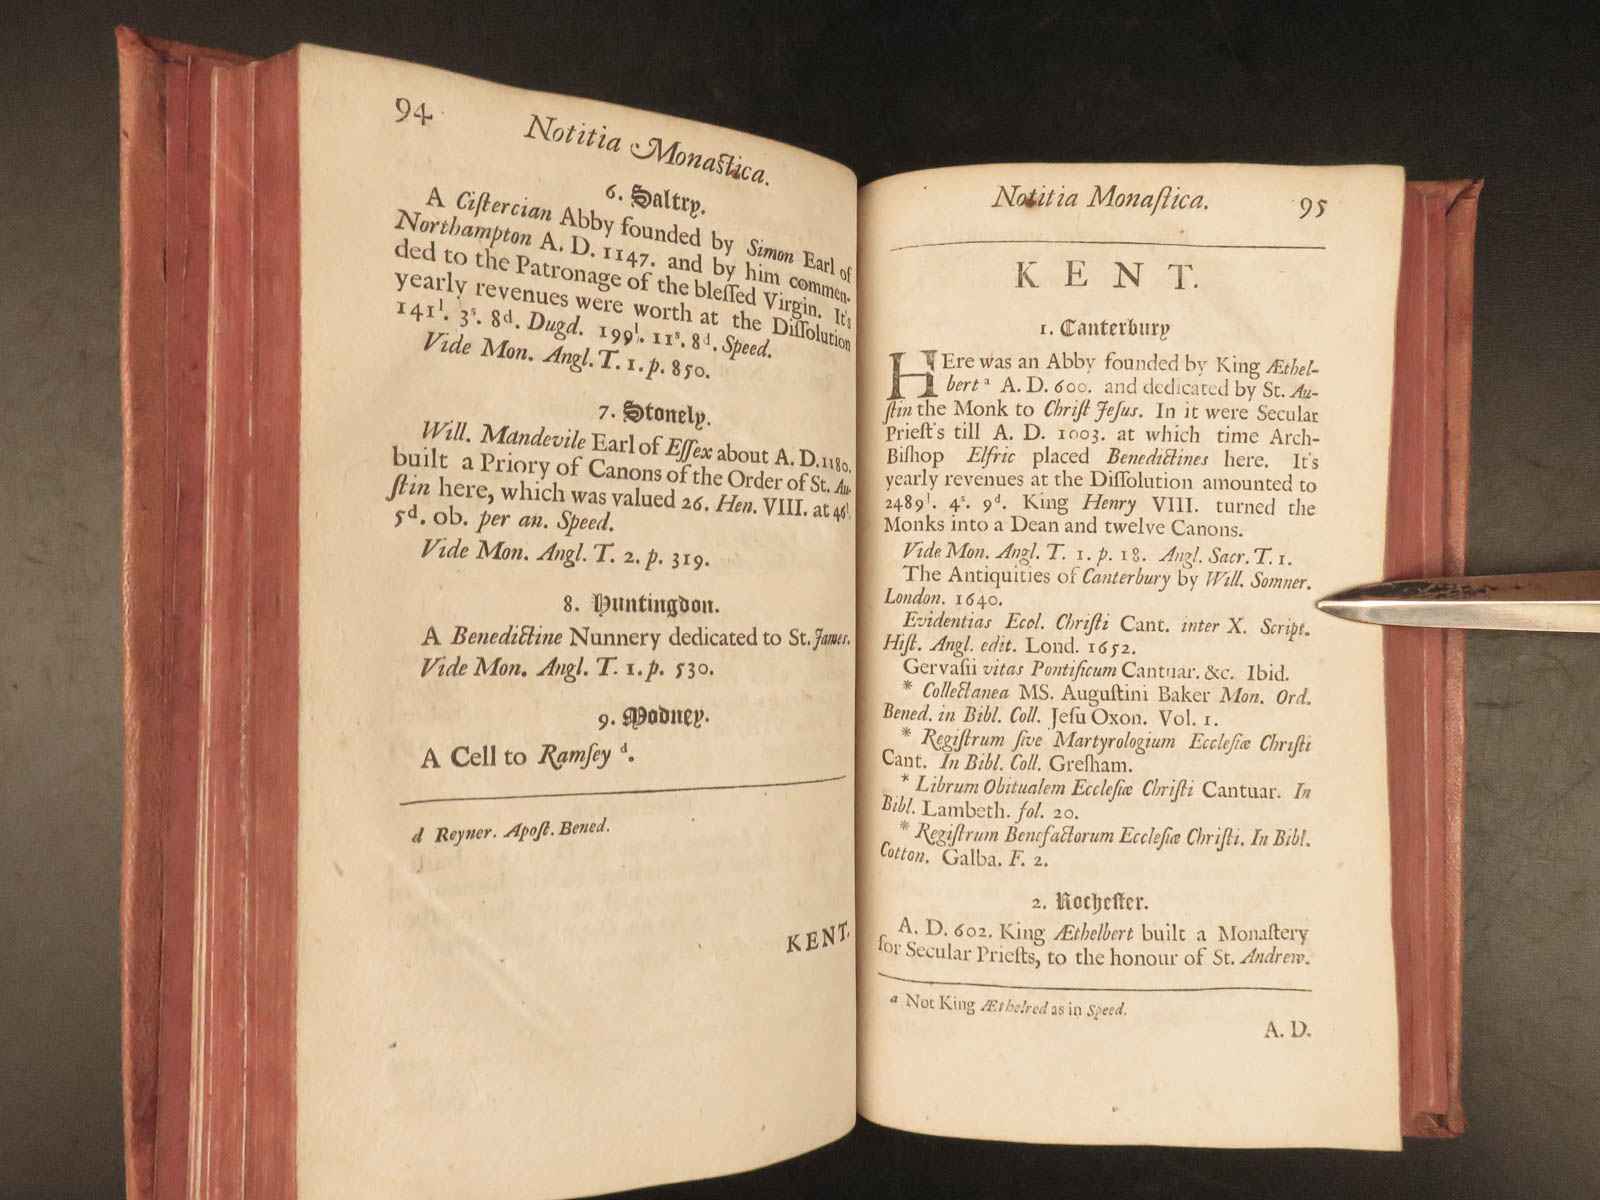 94
Notitia Monastica.
6. Saltry.
A Ciſtercian Abby founded by Simon Earl of
Northampton A. D. 1147. and by him commen-
ded to the Patronage of the bleſſed Virgin. It's
yearly revenues were worth at the Diſſolution
141l. 3s. 8d. Dugd. 199l. 11s. 8d. Speed.
Vide Mon. Angl. T. 1. p. 850.
7. Stonely.
Will. Mandevile Earl of Eſſex about A. D. 1180.
built a Priory of Canons of the Order of St. Au-
ſtin here, which was valued 26. Hen. VIII. at 46l.
5d. ob. per an. Speed.
Vide Mon. Angl. T. 2. p. 319.
8. Huntingdon.
A Benedictine Nunnery dedicated to St. James.
Vide Mon. Angl. T. 1. p. 530.
9. Modney.
A Cell to Ramſey d.
d Reyner. Apoſt. Bened.
KENT.
Notitia Monaſtica. 95
KENT.
1. Canterbury
HEre was an Abby founded by King Æthel-
bert a A. D. 600. and dedicated by St. Au-
ſtin the Monk to Chriſt Jeſus. In it were Secular
Prieſt's till A. D. 1003. at which time Arch-
Biſhop Elfric placed Benedictines here. It's
yearly revenues at the Diſſolution amounted to
2489l. 4s. 9d. King Henry VIII. turned the
Monks into a Dean and twelve Canons.
Vide Mon. Angl. T. 1. p. 18. Angl. Sacr. T. 1.
The Antiquities of Canterbury by Will. Somner.
London. 1640.
Evidentias Ecol. Chriſti Cant. inter X. Script.
Hiſt. Angl. edit. Lond. 1652.
Gervaſii vitas Pontificum Cantuar. &c. Ibid.
* Collectanea MS. Auguſtini Baker Mon. Ord.
Bened. in Bibl. Coll. Jeſu Oxon. Vol. 1.
* Regiſtrum ſive Martyrologium Eccleſiæ Chriſti
Cant. In Bibl. Coll. Greſham.
* Librum Obitualem Eccleſiæ Chriſti Cantuar. In
Bibl. Lambeth. fol. 20.
* Regiſtrum Benefactorum Eccleſiæ Chriſti. In Bibl.
Cotton. Galba. F. 2.
2. Rocheſter.
A. D. 602. King Æthelbert built a Monaſtery
for Secular Prieſts, to the honour of St. Andrew.
a Not King Æthelred as in Speed.
A. D.